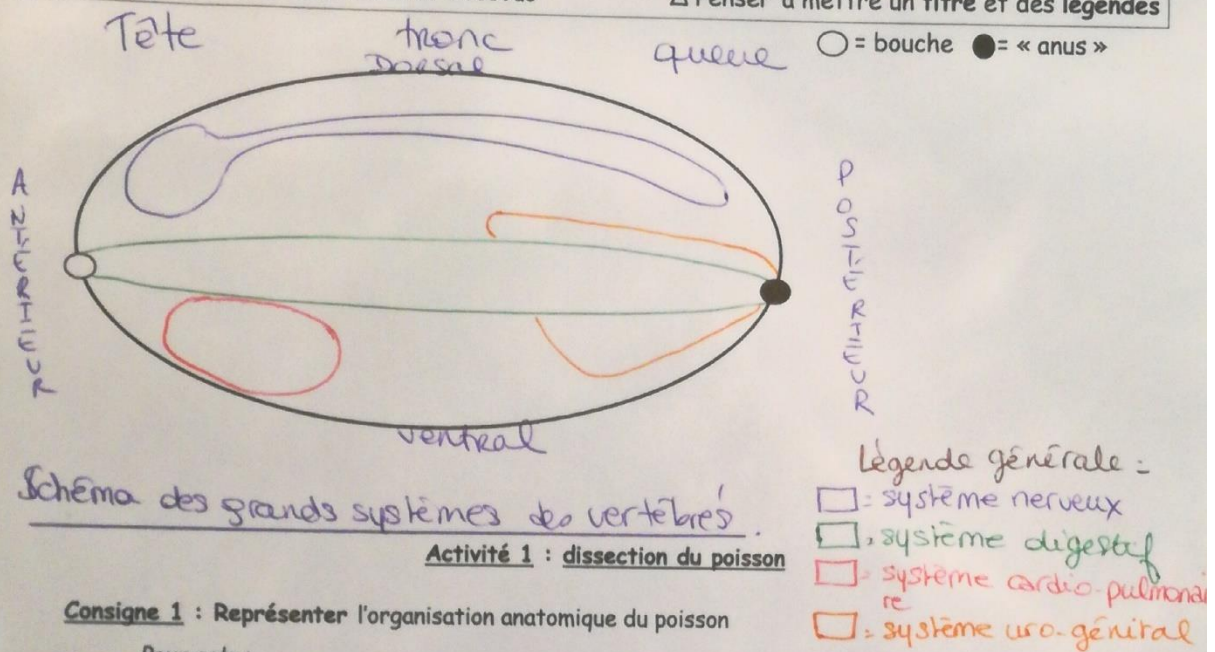 Penser à mettre un titre et des légendes
Tête tronc queue
Dorsal
= bouche = « anus »
ANTÉRIEUR
POSTÉRIEUR
ventral
Légende générale :
Schéma des grands systèmes des vertébrés.
: système nerveux
: système digestif
: système cardio-pulmonai
re
: système uro-génital
Activité 1 : dissection du poisson
Consigne 1 : Représenter l'organisation anatomique du poisson